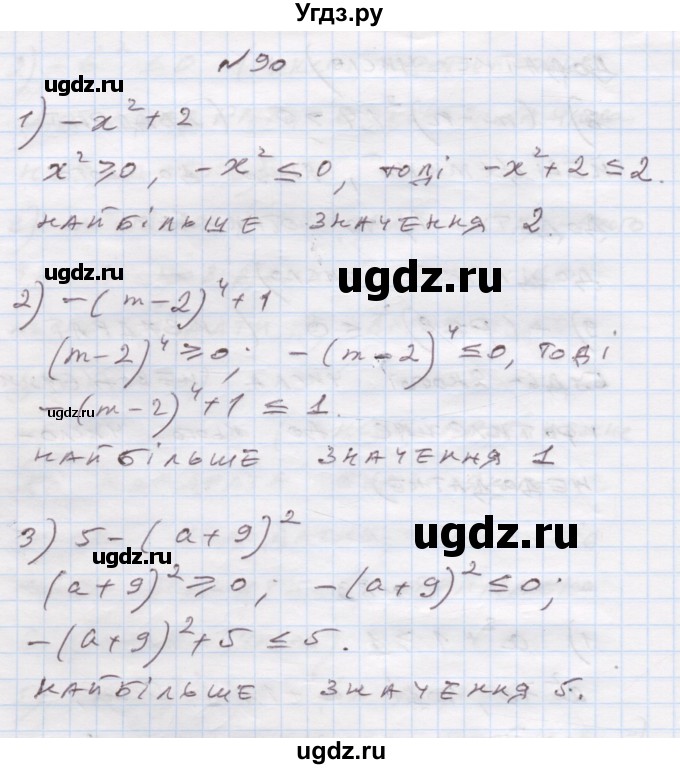 Угдз.ру
№90
ugdz.ru
1) -x² + 2
x² ⩾ 0, -x² ≤ 0, тоді -x² + 2 ≤ 2.
найбільше значення 2.
ugdz.ru
ugdz.ru
2) -(m-2)⁴+1
(m-2)⁴ ⩾ 0; -(m-2)⁴ ≤ 0, тоді
-(m-2)⁴+1 ≤ 1.
ugdz.ru
найбільше значення 1
3) 5-(a+9)²
ugdz.ru
ugdz.ru
(a+9)² ⩾ 0; -(a+9)² ≤ 0;
-(a+9)²+5 ≤ 5.
найбільше значення 5.
ugdz.ru